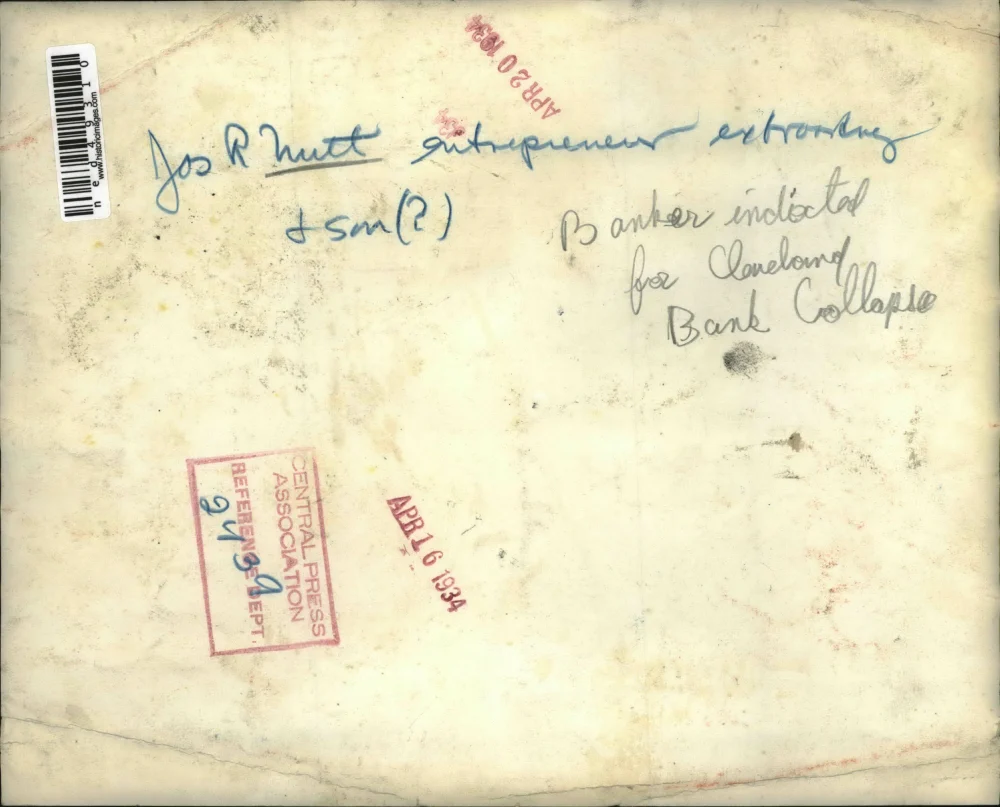 APR 20 1934
ned49310
www.historicimages.com
Jos R Nutt entrepreneur
+ son (?)
Banker indicted
for Cleveland
Bank Collapse
CENTRAL PRESS
ASSOCIATION
REFERENCE DEPT.
2439
APR 16 1934